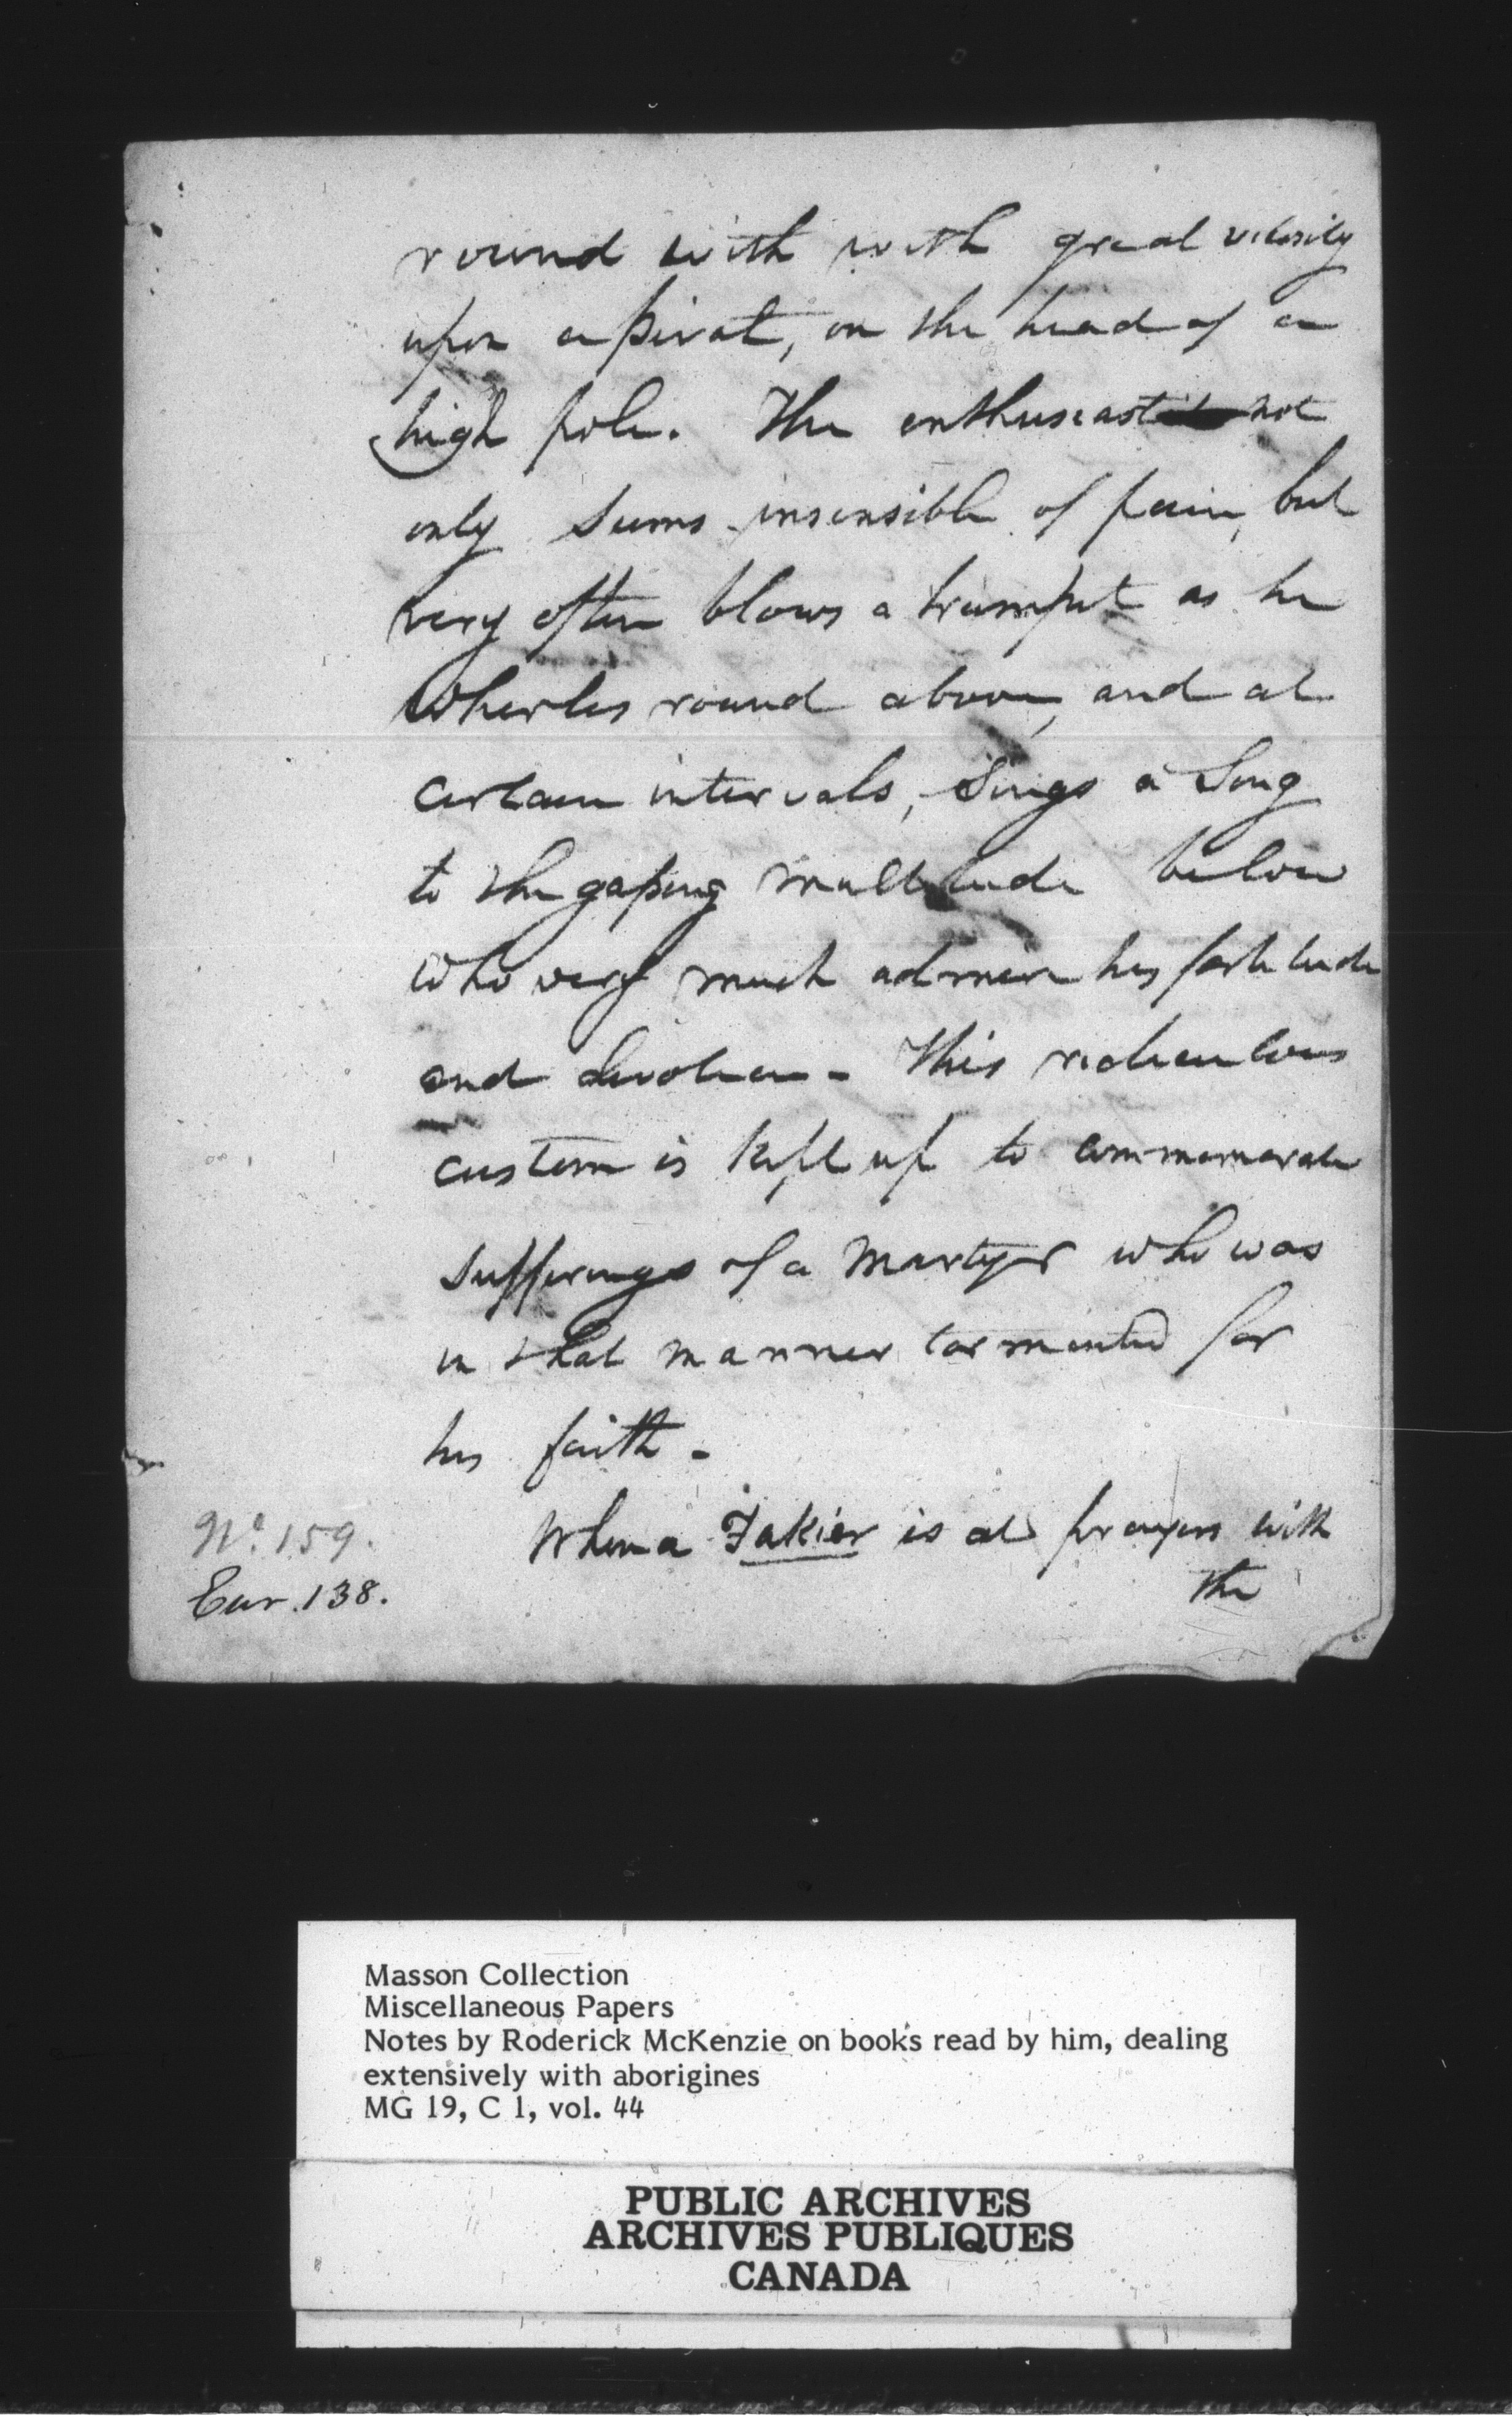 round with with great velocity
upon a pivot, on the head of a
high pole. The enthusiast not
only seems insensible of pain, but
very often blows a trumpet as he
wherles round above, and at
certain intervals, Sings a Song
to the gaping multitude below
who very much admire his fortitude
and devotion - This ridiculous
custom is kept up to commemorate
sufferings of a Martyr who was
in that manner tormented for
his faith -
When a Fakier is at prayers with
the
No. 159.
Ear. 138.
Masson Collection
Miscellaneous Papers
Notes by Roderick McKenzie on books read by him, dealing
extensively with aborigines
MG 19, C 1, vol. 44
PUBLIC ARCHIVES
ARCHIVES PUBLIQUES
CANADA